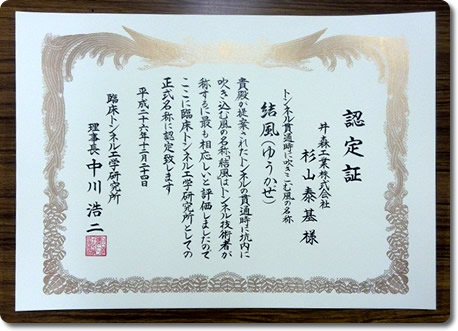 認定証
井森工業株式会社
杉山泰基様
トンネル貫通時に吹きこむ風の名称
結風(ゆうかぜ)
貴殿が提案されたトンネルの貫通時に坑内に
吹き込む風の名称「結風」はトンネル技術者が
称するに最も相応しいと評価しましたので
ここに臨床トンネル工学研究所としての
正式名称に認定致します
平成二十六年十二月二十四日
臨床トンネル工学研究所
理事長 中川浩二